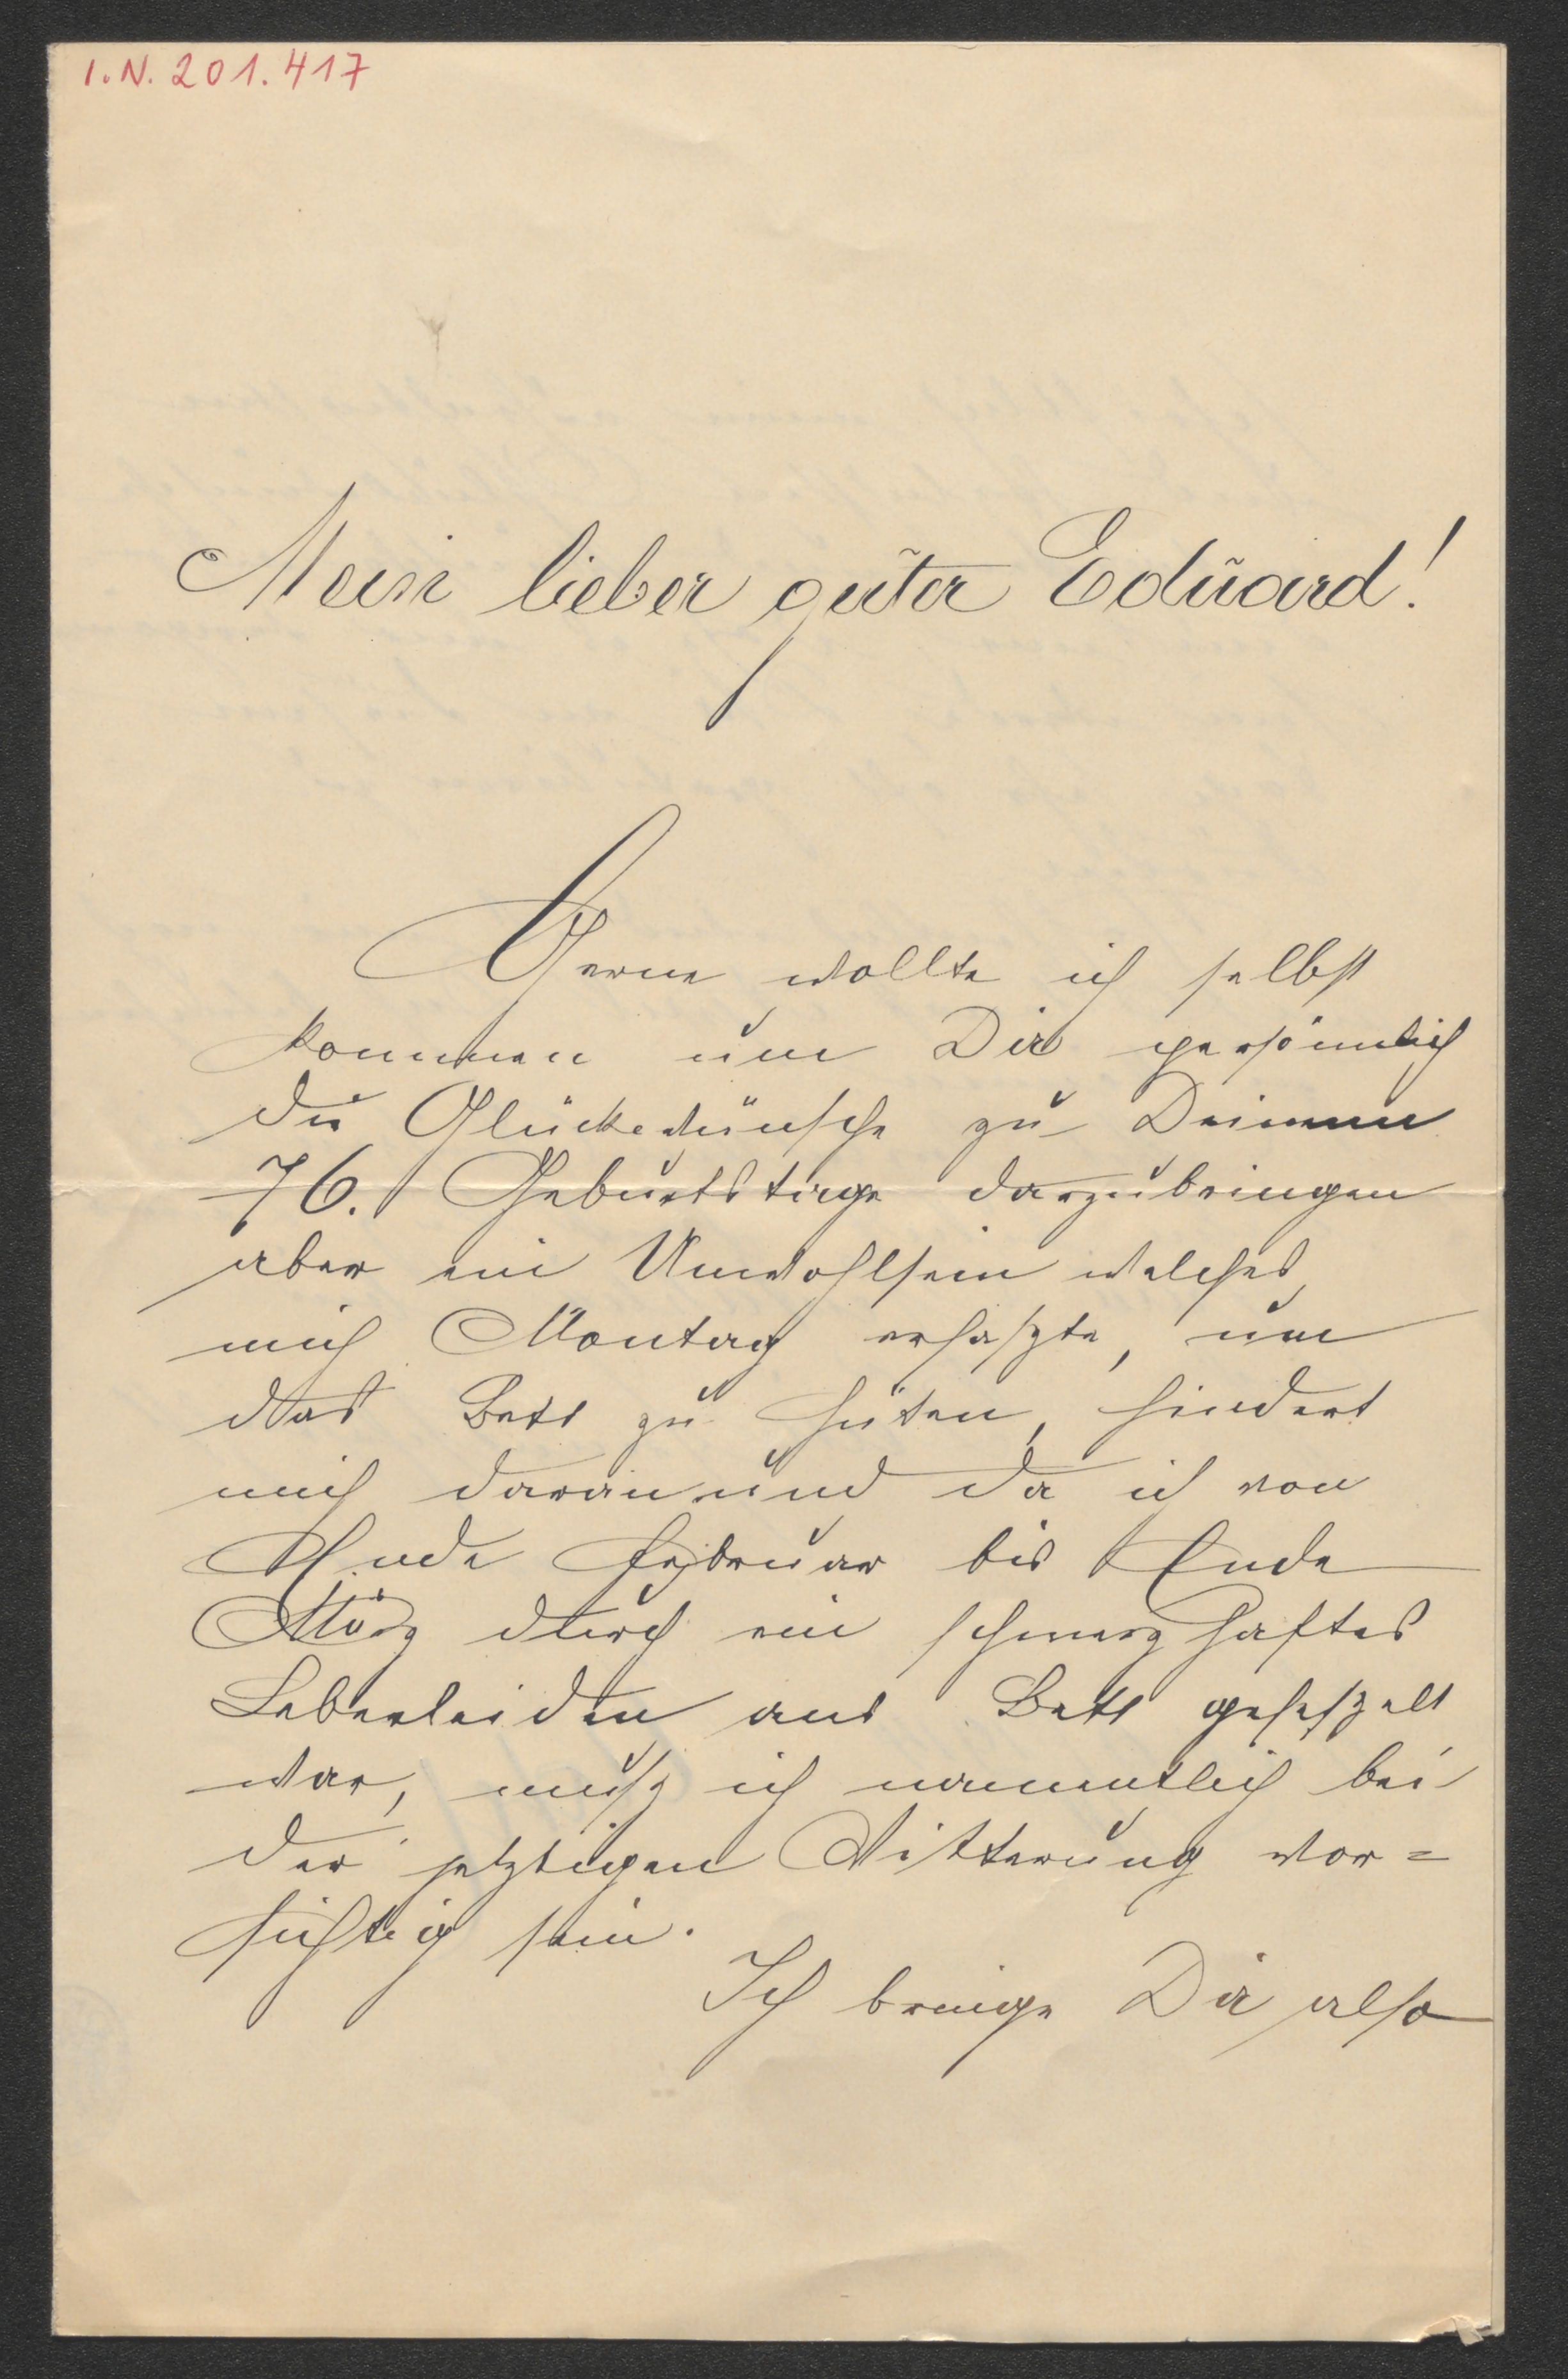 I.N. 201.417
Mein lieber guter Eduard!
Gerne wollte ich selbst
kommen um Dir persönnlich
die Glückwünsche zu Deinem
76. Geburtstage darzubringen
aber ein Unwohlsein welches
mich Montag erfaszte, um
das Bett zu hüten, hindert
mich daran und da ich von
Ende Februar bis Ende
März durch ein schmerzhaftes
Leberleiden ans Bett gefeszelt
war, musz ich namentlich bei
der jetztigen Witterung vor=
sichtig sein.
Ich bringe Dir also